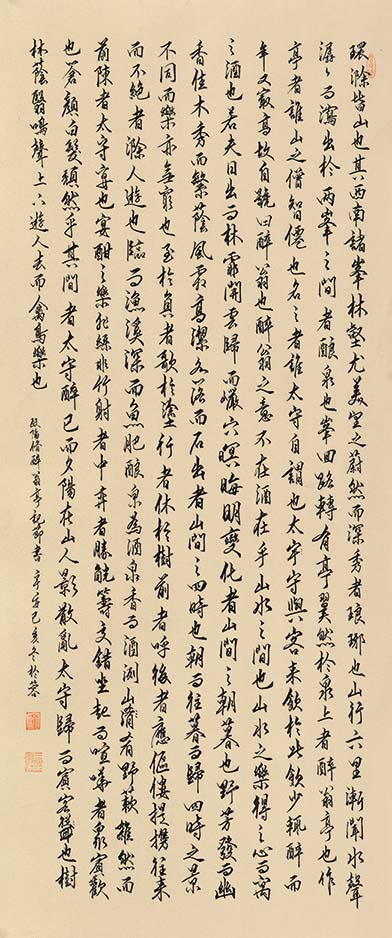 環滁皆山也其西南諸峯林壑尤美望之蔚然而深秀者琅琊也山行六里漸聞水聲
潺潺而瀉出於兩峯之間者釀泉也峯回路轉有亭翼然於泉上者醉翁亭也作
亭者誰山之僧智僊也名之者誰太守自謂也太守與客来飲於此飲少輒醉而
年又最高故自號曰醉翁也醉翁之意不在酒在乎山水之間也山水之樂得之心而寓
之酒也若夫日出而林霏開雲歸而巖穴暝晦明變化者山間之朝暮也野芳發而幽
香佳木秀而繁蔭風霜高潔水落而石出者山間之四時也朝而往暮而歸四時之景
不同而樂亦無窮也至於負者歌於塗行者休於樹前者呼後者應傴僂提攜往来
而不絕者滁人遊也臨而漁溪深而魚肥釀泉為酒泉香而酒洌山肴野蔌雜然而
前陳者太守宴也宴酣之樂非絲非竹射者中弈者勝觥籌交錯坐起而喧嘩者衆賓歡
也蒼顔白髮頹然乎其間者太守醉已而夕陽在山人影散亂太守歸而賓客從也樹
林蔭翳鳴聲上下遊人去而禽鳥樂也
歐陽脩醉翁亭記節書己亥冬於蓉